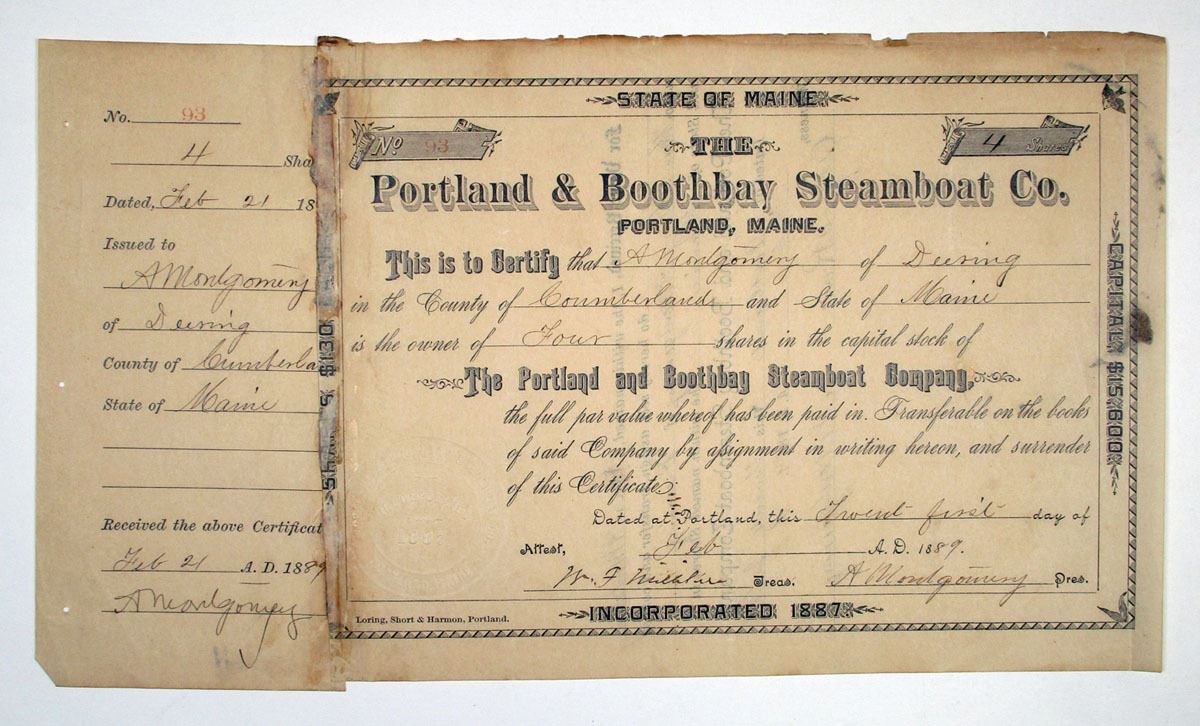 No. 93
4 Sha
Dated, Feb 21 18
Issued to
A Montgomery
of Deering
County of Cumberla
State of Maine
Received the above Certificat
Feb 21 A.D. 1889
A Montgomery
SHARES $130
STATE OF MAINE
No 93
THE
4 Shares
Portland & Boothbay Steamboat Co.
PORTLAND, MAINE.
This is to Certify that A Montgomery of Deering
in the County of Coumberland and State of Maine
is the owner of Four shares in the capital stock of
The Portland and Boothbay Steamboat Company,
the full par value whereof has been paid in. Transferable on the books
of said Company by assignment in writing hereon, and surrender
of this Certificate.
Dated at Portland, this Twent first day of
Feb A.D. 1889.
Attest,
Wm. F Treas. A Montgomery Pres.
INCORPORATED 1887
Loring, Short & Harmon, Portland.
CAPITAL $15,600